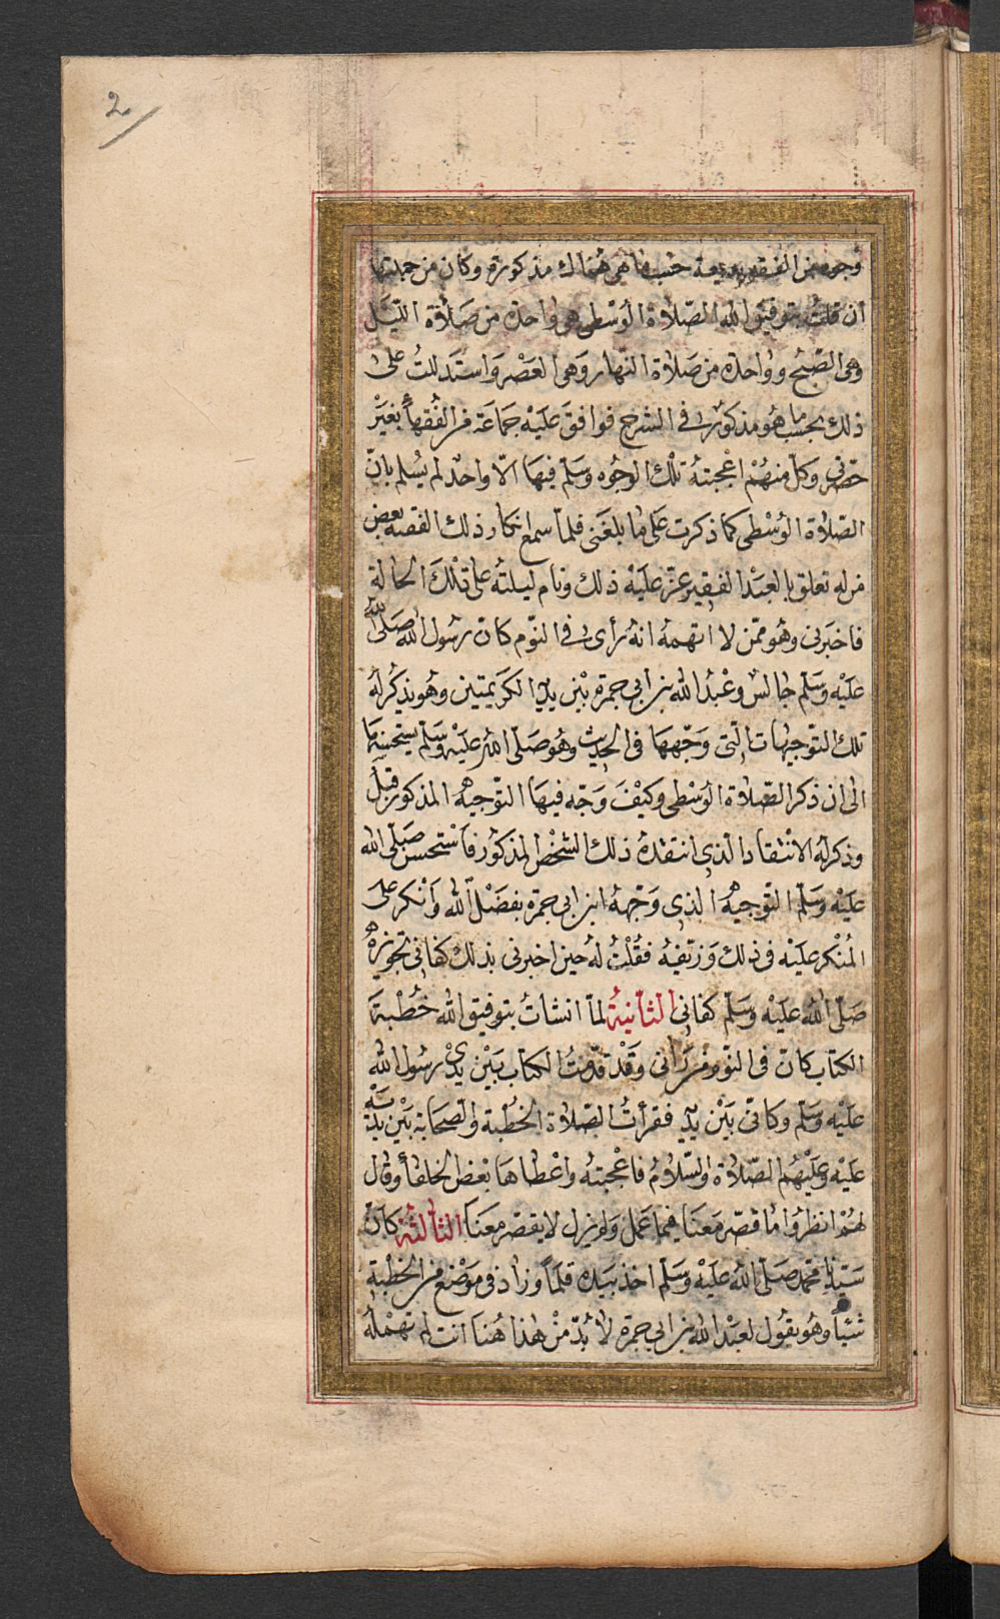 2
وجوه من الفقه بديعة حسب ما هي هنالك مذكورة وكان من جملتها
ان قلت بتوفيق الله الصّلاة الوسْطى هي واحدة من صَلاة الليَل
وهى الصّبح وواحدة من صَلاة النّهار وَهي العَصْر وَاستَدللتُ على
ذلك بحسب ما هو مذكور في الشرح فوافقَ عليْه جَماعَة من الفُقهاء بغيْر
حضرتي وكل منهُم اعْجبتهُ تلك الوجُوه وسَلّم فيهَا الّا واحد لم يُسلم بانّ
الصّلاة الوُسْطى كما ذكرت عَلى مَا بلغَني فلما سمع انكار ذلك الفقيه بعض
من له تعلق بالعبْد الفقير عزّ عليْه ذلك ونام ليلتهُ على تلْكَ الحالة
فاخبَرنى وهُو ممّن لا اتهمهُ انهُ رأى فى النوّم كانّ رسُول الله صَلى الله
عليْه وسَلم جالسٌ وعبْد الله بن ابي جمرة بيْن يديْه الكريمتين وهُو يذكُر لهُ
تلك التوّجيهات التى وَجّههَا فى الحديث وهُو صَلّى الله عليْه وسَلم يستحسنهَا
الى ان ذكر الصّلاة الوُسْطى وكيْفَ وَجّه فيهَا التوّجيه المذكور قبلُ
وذكر لهُ الانتقاد الذى انتقدهُ ذلك الشخْص المذكوُر فاستحسن صَلّى الله
عليْه وسَلم التوّجيه الذى وَجّههُ ابن ابي جمرة بفضَل الله وَانْكر على
المُنْكر عليْه فى ذلك وَزيّفهُ فقُلتُ لهُ حين اخبرنى بذلك كفانى تجويزهُ
صَلّى الله عليْه وسَلم كفانى الثانيةُ لما انشأتُ بتوفيق الله خُطبَة
الكتاب كانّ فى النوّم من رَانى وَقَدْ قدّمتُ الكتاب بَيْن يدىْ رسُول الله
عليْه وسَلم وكانّى بَيْن يديه فقرأتُ الصّلاة الخُطْبة والصّحَابة بَيْن يديْه
عليْه وعليْهُم الصّلاة والسّلامُ فاعْجبتهُ واعْطاهَا بَعْض الخلفأ وقال
لهُمْ انظرُوا ما قصّر مَعنَا فيما عمَل وَلم يزل لا يقصّر معَنَا الثالثة كانّ
سَيّدنا محمّد صَلّى الله عليْه وسَلم اخذ بيَده قلَماً وزاد فى موْضع من الخطبة
شيْئاً وهُو يقُول لعبْد الله بن ابي جمرة لا بُدّ منْ هٰذا هُنا انت لم تهْملهُ